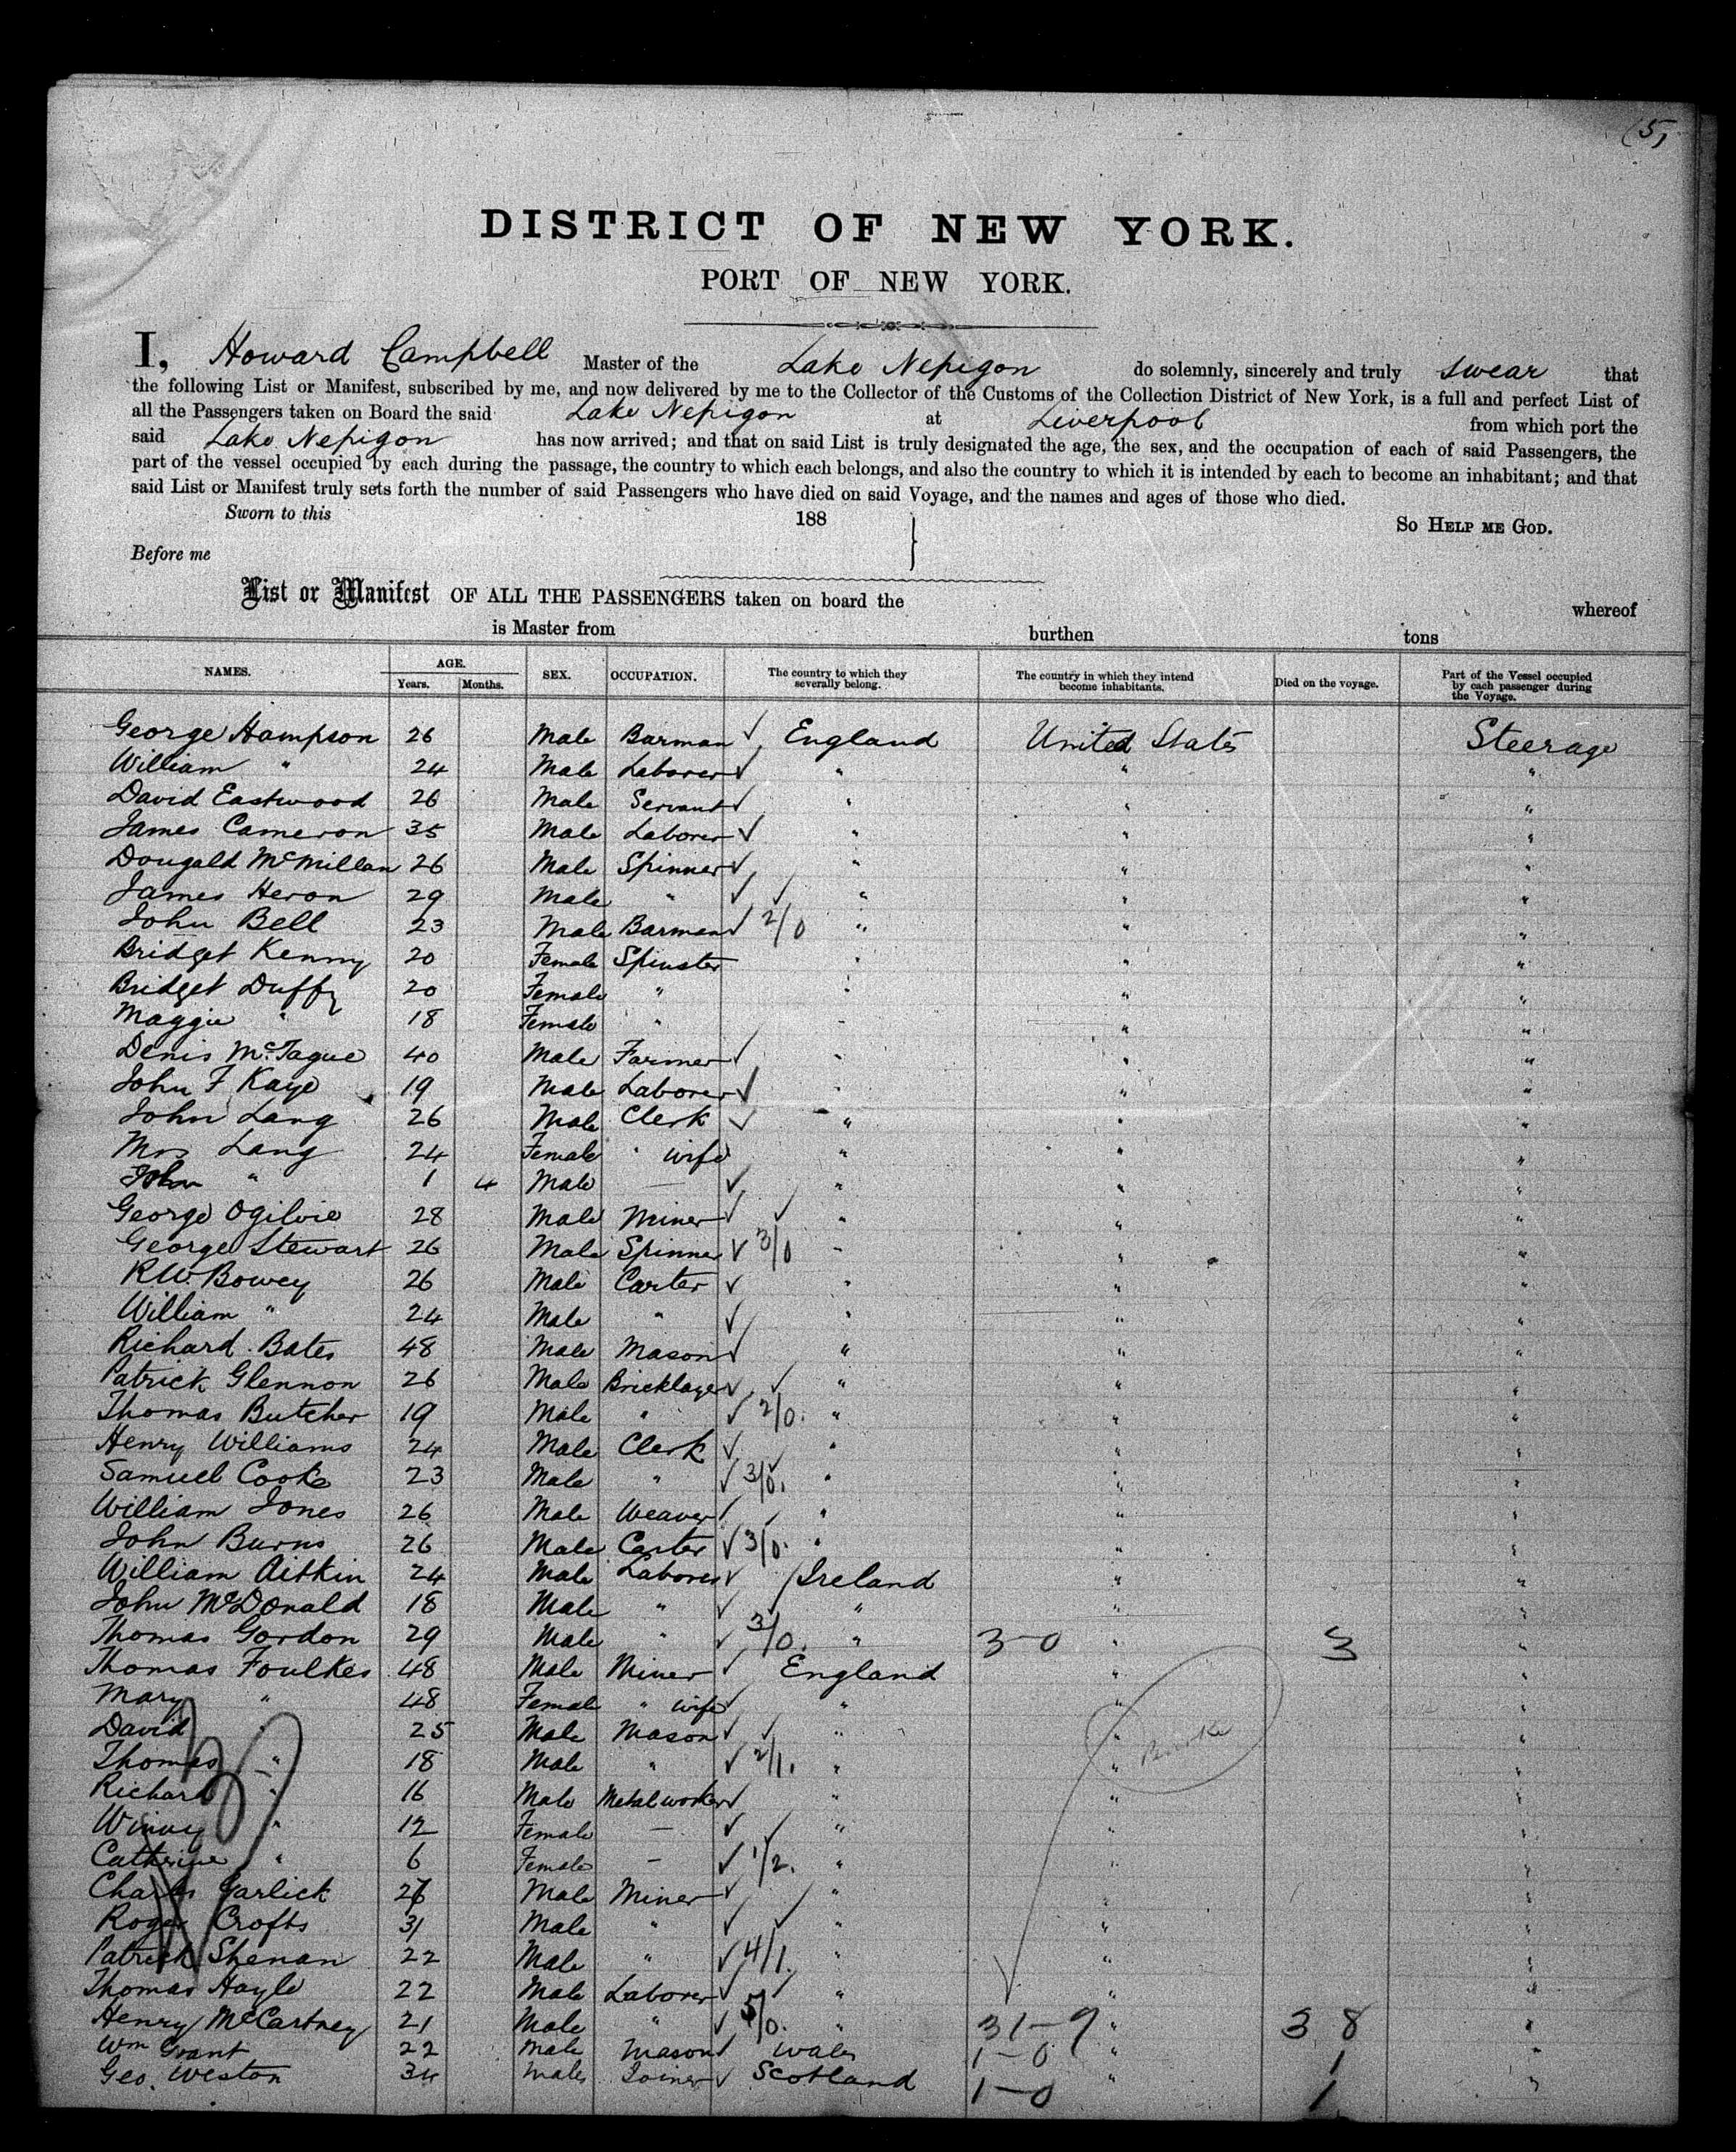 (5)
DISTRICT OF NEW YORK.
PORT OF NEW YORK.
I, Howard Campbell Master of the Lake Nepigon do solemnly, sincerely and truly swear that
the following List or Manifest, subscribed by me, and now delivered by me to the Collector of the Customs of the Collection District of New York, is a full and perfect List of
all the Passengers taken on Board the said Lake Nepigon at Liverpool from which port the
said Lake Nepigon has now arrived; and that on said List is truly designated the age, the sex, and the occupation of each of said Passengers, the
part of the vessel occupied by each during the passage, the country to which each belongs, and also the country to which it is intended by each to become an inhabitant; and that
said List or Manifest truly sets forth the number of said Passengers who have died on said Voyage, and the names and ages of those who died.
Sworn to this 188 So HELP ME GOD.
Before me
List or Manifest OF ALL THE PASSENGERS taken on board the whereof
is Master from burthen tons
NAMES. AGE. Years. Months. SEX. OCCUPATION. The country to which they severally belong. The country in which they intend become inhabitants. Died on the voyage. Part of the Vessel occupied by each passenger during the Voyage.
George Hampson 26 Male Barman ✓ England United States Steerage
William " 24 Male Laborer ✓ " " "
David Eastwood 26 Male Servant ✓ " " "
James Cameron 35 Male Laborer ✓ " " "
Dougald McMillan 26 Male Spinner ✓ " " "
James Heron 29 Male " ✓ ✓ " " "
John Bell 23 Male Barman ✓ 2/0 " " "
Bridget Kenny 20 Female Spinster " " "
Bridget Duffy 20 Female " " " "
Maggie " 18 Female " " " "
Denis McTague 40 Male Farmer ✓ " " "
John F Kaye 19 Male Laborer ✓ " " "
John Lang 26 Male Clerk ✓ " " "
Mrs Lang 24 Female " wife " " "
John " 1 4 Male — ✓ " " "
George Ogilvie 28 Male Miner ✓ ✓ " " "
George Stewart 26 Male Spinner ✓ 3/0 " " "
R.W. Bowey 26 Male Carter ✓ " " "
William " 24 Male " ✓ " " "
Richard Bates 48 Male Mason ✓ " " "
Patrick Glennon 26 Male Bricklayer ✓ ✓ " " "
Thomas Butcher 19 Male " ✓ 2/0. " " "
Henry Williams 24 Male Clerk ✓ ✓ " " "
Samuel Cooke 23 Male " ✓ 3/0. " " "
William Jones 26 Male Weaver ✓ ✓ " " "
John Burns 26 Male Carter ✓ 3/0. " " "
William Aitkin 24 Male Laborer ✓ Ireland " "
John McDonald 18 Male " ✓ ✓ " " "
Thomas Gordon 29 Male " ✓ 3/0. " 3-0 " 3 "
Thomas Foulkes 48 Male Miner ✓ England " "
Mary " 48 Female " wife ✓ " " "
David " 25 Male Mason ✓ ✓ " " "
Thomas " 18 Male " ✓ 2/1. " " "
Richard " 16 Male Metalworker ✓ " " "
Winny " 12 Female — ✓ ✓ " " "
Catherine " 6 Female — ✓ 1/2. " " "
Charles Garlick 26 Male Miner ✓ " " "
Roger Crofts 31 Male " ✓ ✓ " " "
Patrick Shenan 22 Male " ✓ 4/1. " " "
Thomas Hayle 22 Male Laborer ✓ ✓ " " "
Henry McCartney 21 Male " ✓ 5/0. " 31-7 " 38 "
Wm Grant 22 Male Mason ✓ Wales 1-0 " 1 "
Geo. Weston 34 Male Joiner ✓ Scotland 1-0 " 1 "